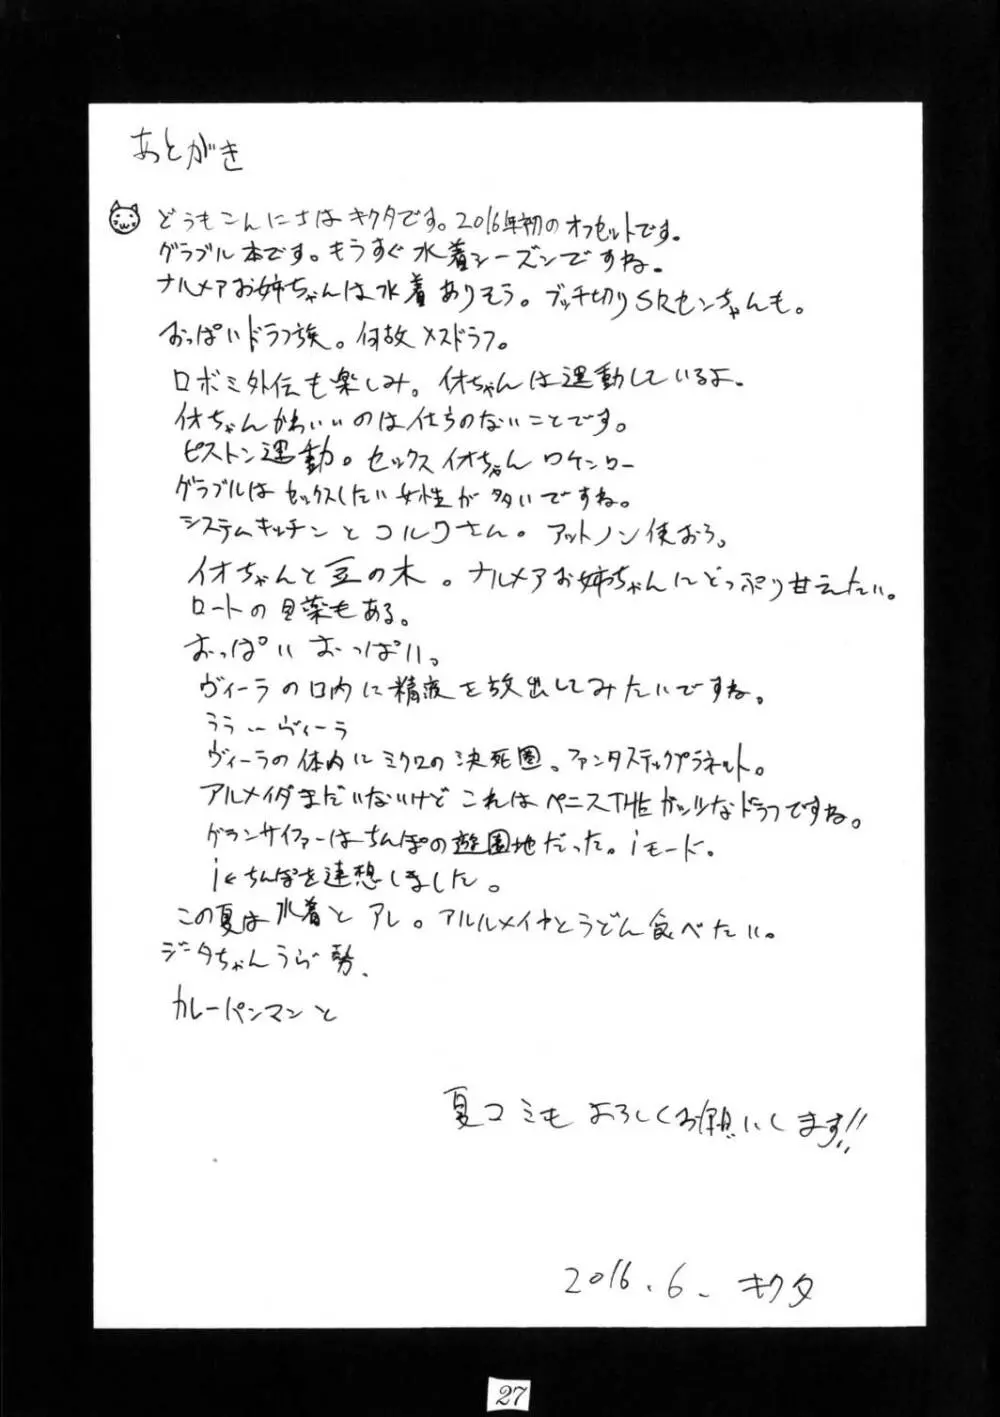 あとがき
どうもこんにちはキクタです。2016年初のオフセットです。
グラブル本です。もうすぐ水着シーズンですね。
ナルメアお姉ちゃんは水着ありそう。ブッチ切りSRセンちゃんも。
おっぱいドラフ族。何故メスドラフ。
グラブルはセックスしたい女性が多いですね。
システムキッチンとコルワさん。アットノン使おう。
ナルメアお姉ちゃんにどっぷり甘えたい。
ロートの目薬もある。
おっぱい おっぱい。
ヴィーラの口内に精液を放出してみたいですね。
ララ ヴィーラ
ヴィーラの体内にミクロの決死圏。ファンタスティックプラネット。
アルメイダまだいないけどこれはペニスTHEガッツなドラフですね。
グランサイファーはちんぽの遊園地だった。iモード。
iとちんぽを連想しました。
この夏は水着とアレ。アルルメイヤとうどん食べたい。
ジータちゃん 勢、
カレーパンマンと
夏コミもよろしくお願いします!!
2016.6. キクタ
27